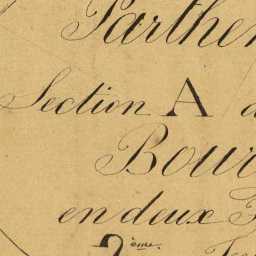 Parthe
Section A d
Bour
en deux F
2ème.